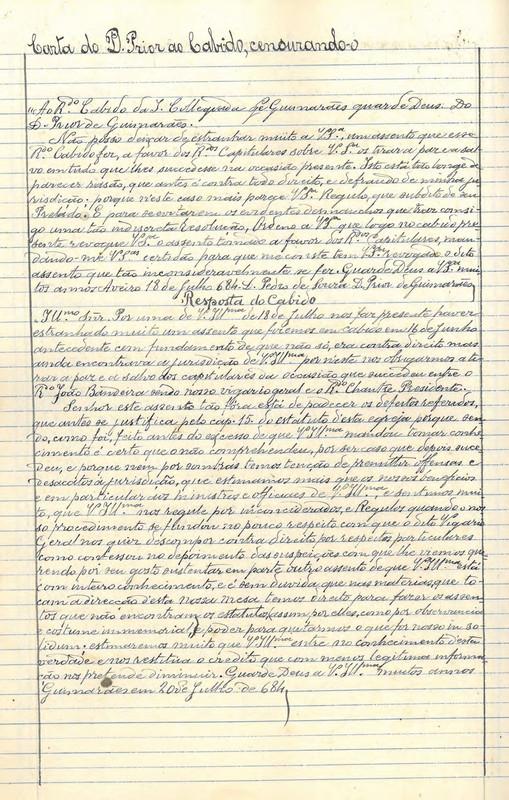 Carta do D. Prior ao Cabido, censurando-o
"Ao R.do Cabido da I. Collegiada de Guimarães guarde Deus. Do
D. Prior de Guimarães.
Não posso deixar de estranhar muito a V.S.a, um assento que esse
R.do Cabido fez, a favor dos R.dos Capitulares sobre V.S.as os tirar a paz e a sal-
vo em tudo que lhes succedesse na occasião presente. Isto está tão longe de
parecer rasão, que antes é contra todo direito, e defraudo de minha ju-
risdição; porque n'este caso mais parece V.S.a Regulo, que subdito do seu
Prelado. E para se evitarem os evidentes desmanchos que traz comsi-
go uma tão indiscreta Resolução, Ordeno a V.S.a que logo no cabido pre-
sente revogue V.S.a o assento tomado a favor dos R.dos Capitulares, man-
dando-me V.S.as certidão para que me conste tem V.S.a revogado o dito
assento que tão inconsideravelmente se fez. Guarde Deus a V.S.a mui-
tos annos Aveiro 18 de Julho 684. D. Pedro de Souza D. Prior de Guimarães
Resposta do Cabido
Ill.mo Snr. Por uma de V.S.Ill.ma de 18 de Julho nos faz presente haver
estranhado muito um assento que fizemos em cabido em 16 de Junho
antecedente com fundamento de que não só, era contra direito mas
ainda encontrava a jurisdição de V.S.Ill.ma por n'este nos obrigarmos a ti-
rar a paz e a salvo dos capitulares da occasião que succedeu entre o
R.do João Bandeira sendo nosso vigario geral e o R.do Chantre Presidente.
Senhor este assento tão fora está de padecer os defeitos referidos,
que antes se justifica pelo cap. 15 do estatuto desta egreja porque sen-
do, como foi, feito antes do excesso de que V.S.Ill.ma mandou tomar conhe-
cimento é certo que o não comprehendeu, por ser caso que depois succe-
deu, e porque nem por sombras temos tenção de premittir offensas e
desacatos á jurisdição, que estimamos mais que os nossos beneficios
e em particular aos ministros e officiaes de V.S.Ill.ma, e sentimos mui-
to, que V.S.Ill.ma nos regule por inconsiderados, e Regulos quando o nos-
so procedimento se fundou no pouco respeito com que o dito Vigario
Geral nos quiz descompor contra direito por respeitos particulares
como confessou no depoimento das suspeições com que lhe viemos que-
rendo por seu gosto sustentar em parte outro assento de que V.S.Ill.ma está
com inteiro conhecimento, e é sem duvida, que nas materias, que to-
cam a direcção d'esta nossa mesa temos direito para fazer os assen-
tos que não encontram os estatutos, assim por elles, como por observancia
e costume immemorial, e poder para quitarmos o que for nosso in so-
lidum: estimaremos muito que V.S.Ill.ma entre no conhecimento d'esta
verdade e nos restitua o credito que com menos legitima informa-
ção nos pretende diminuir. Guarde Deus a V.S.Ill.ma muitos annos
Guimarães em 20 de Julho de 684